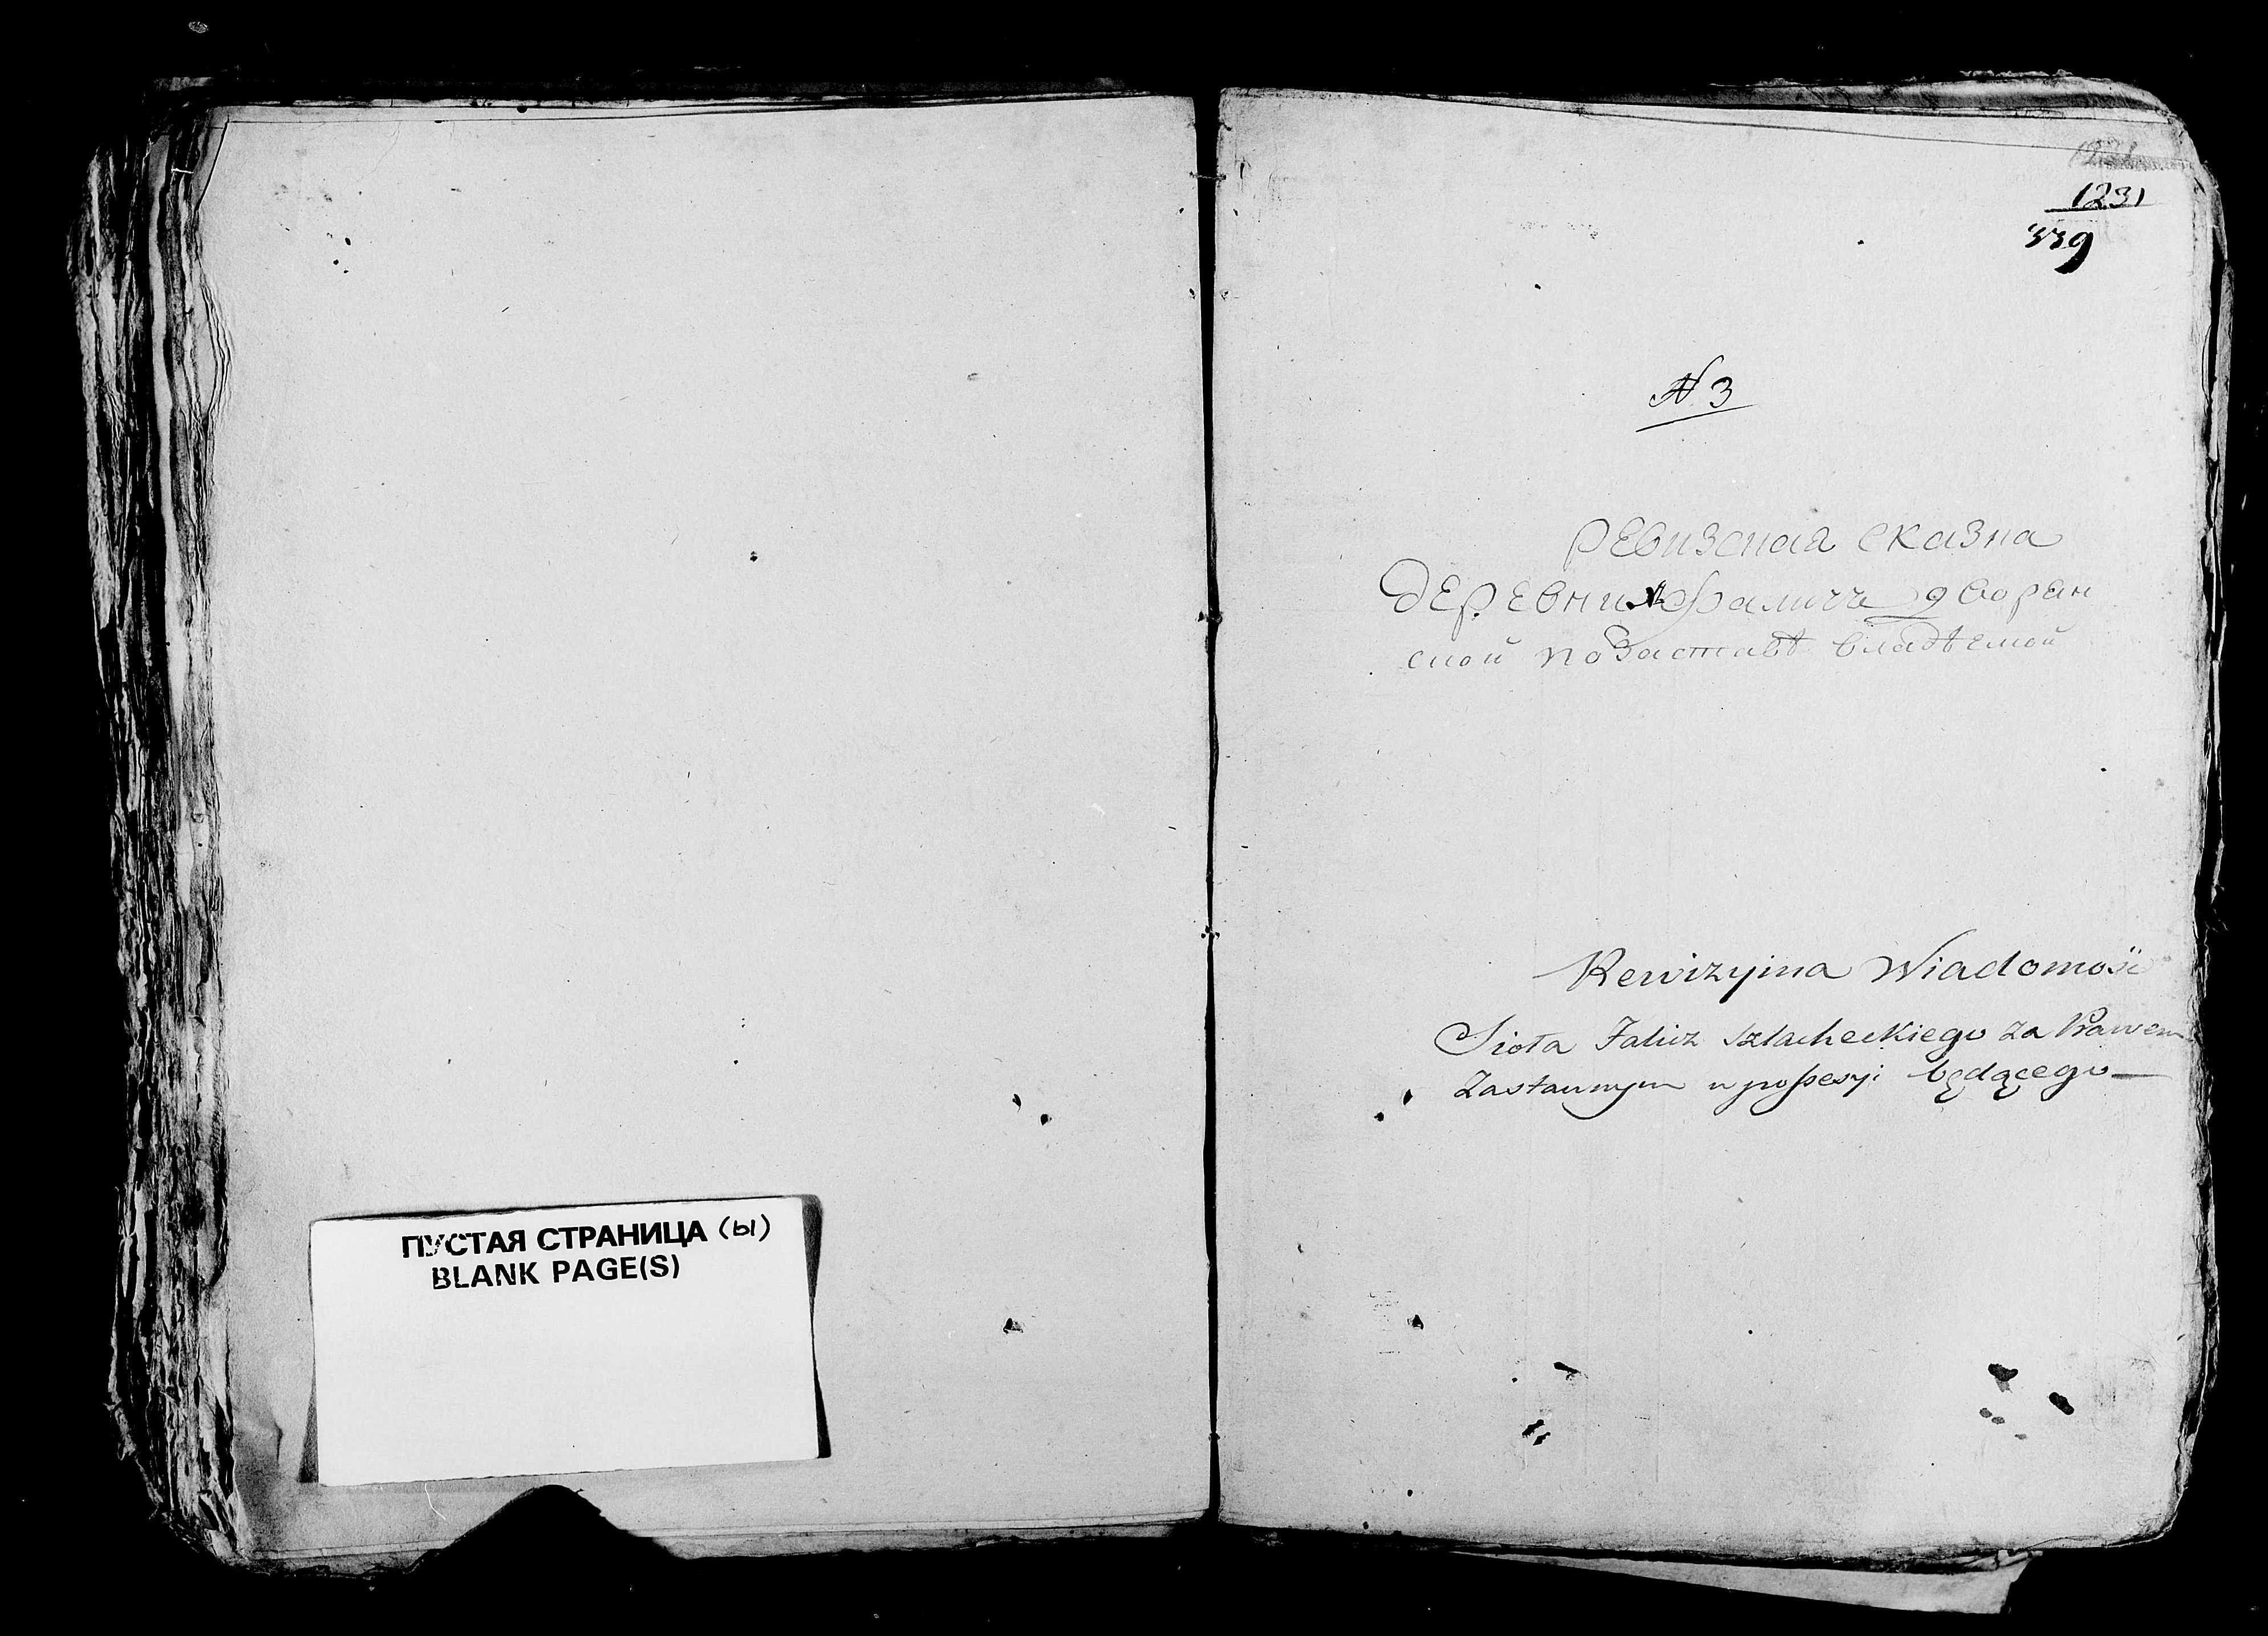 ПУСТАЯ СТРАНИЦА (ы)
BLANK PAGE(S)
1231
339
N 3
Ревизская сказка
Деревни Фаличъ дворян
ской по заставѣ владѣемой
Rewizyina Wiadomość
Sioła Falicz szlacheckiego za Prawem
Zastawnym w possesyi będącego